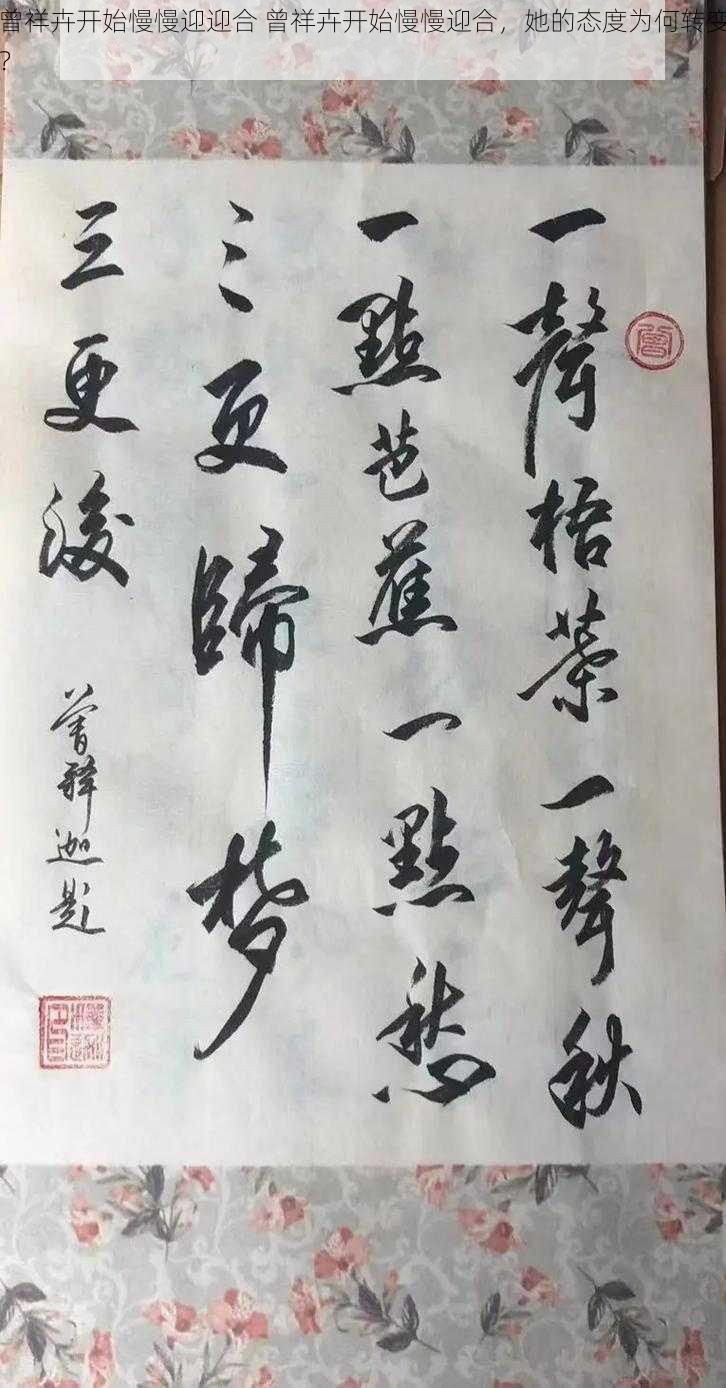 曾祥卉开始慢慢迎迎合 曾祥卉开始慢慢迎合，她的态度为何转变
？
一聲梧葉一聲秋
一點芭蕉一點愁
三更歸梦
三更後
曾釋迦题